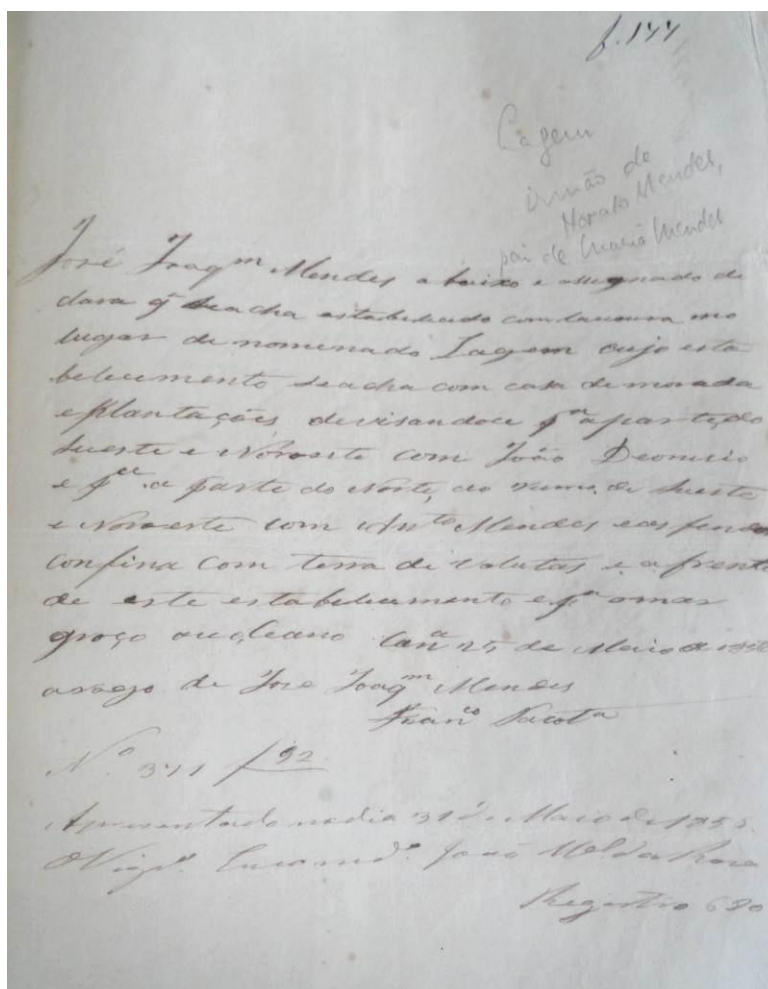 f. 144
Lagem
irmão de
Horato Mendes,
pai de Maria Mendes
José Joaqm Mendes abaixo e assegnado de
clara q̃ se acha estabelecido com lavoura no
lugar denomenado Lagem cujo esta
belecemento se acha com casa de morada
e plantações devisandoce pa a parte do
Sueste e Noroeste com João Deonizio
e pa a parte do Norte, ao rumo de Sueste
e Noroeste com Anto Mendes e os fundos
confina com terra de valutas e a frente
de este estabelecemento e pa o mar
groço ou oleano Cana 25 de Maio de
a rogo de Jose Joaqm Mendes
Franco
No 341 f 92
Apresentado no dia 31 de Maio de
O Vigro Encomdo João Mel da
Registro 680